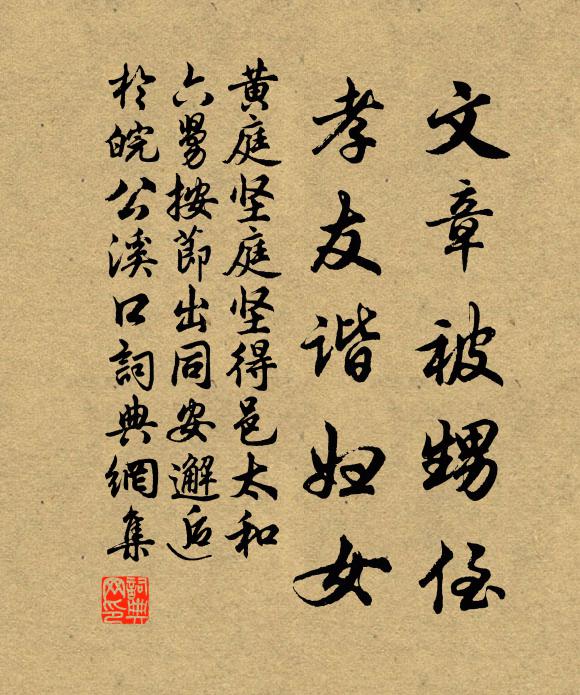 文章被甥侄
孝友谐妇女
黄庭坚庭坚得邑太和
六舅按節出同安邂逅
於皖公溪口詞典網集
詞典
网印